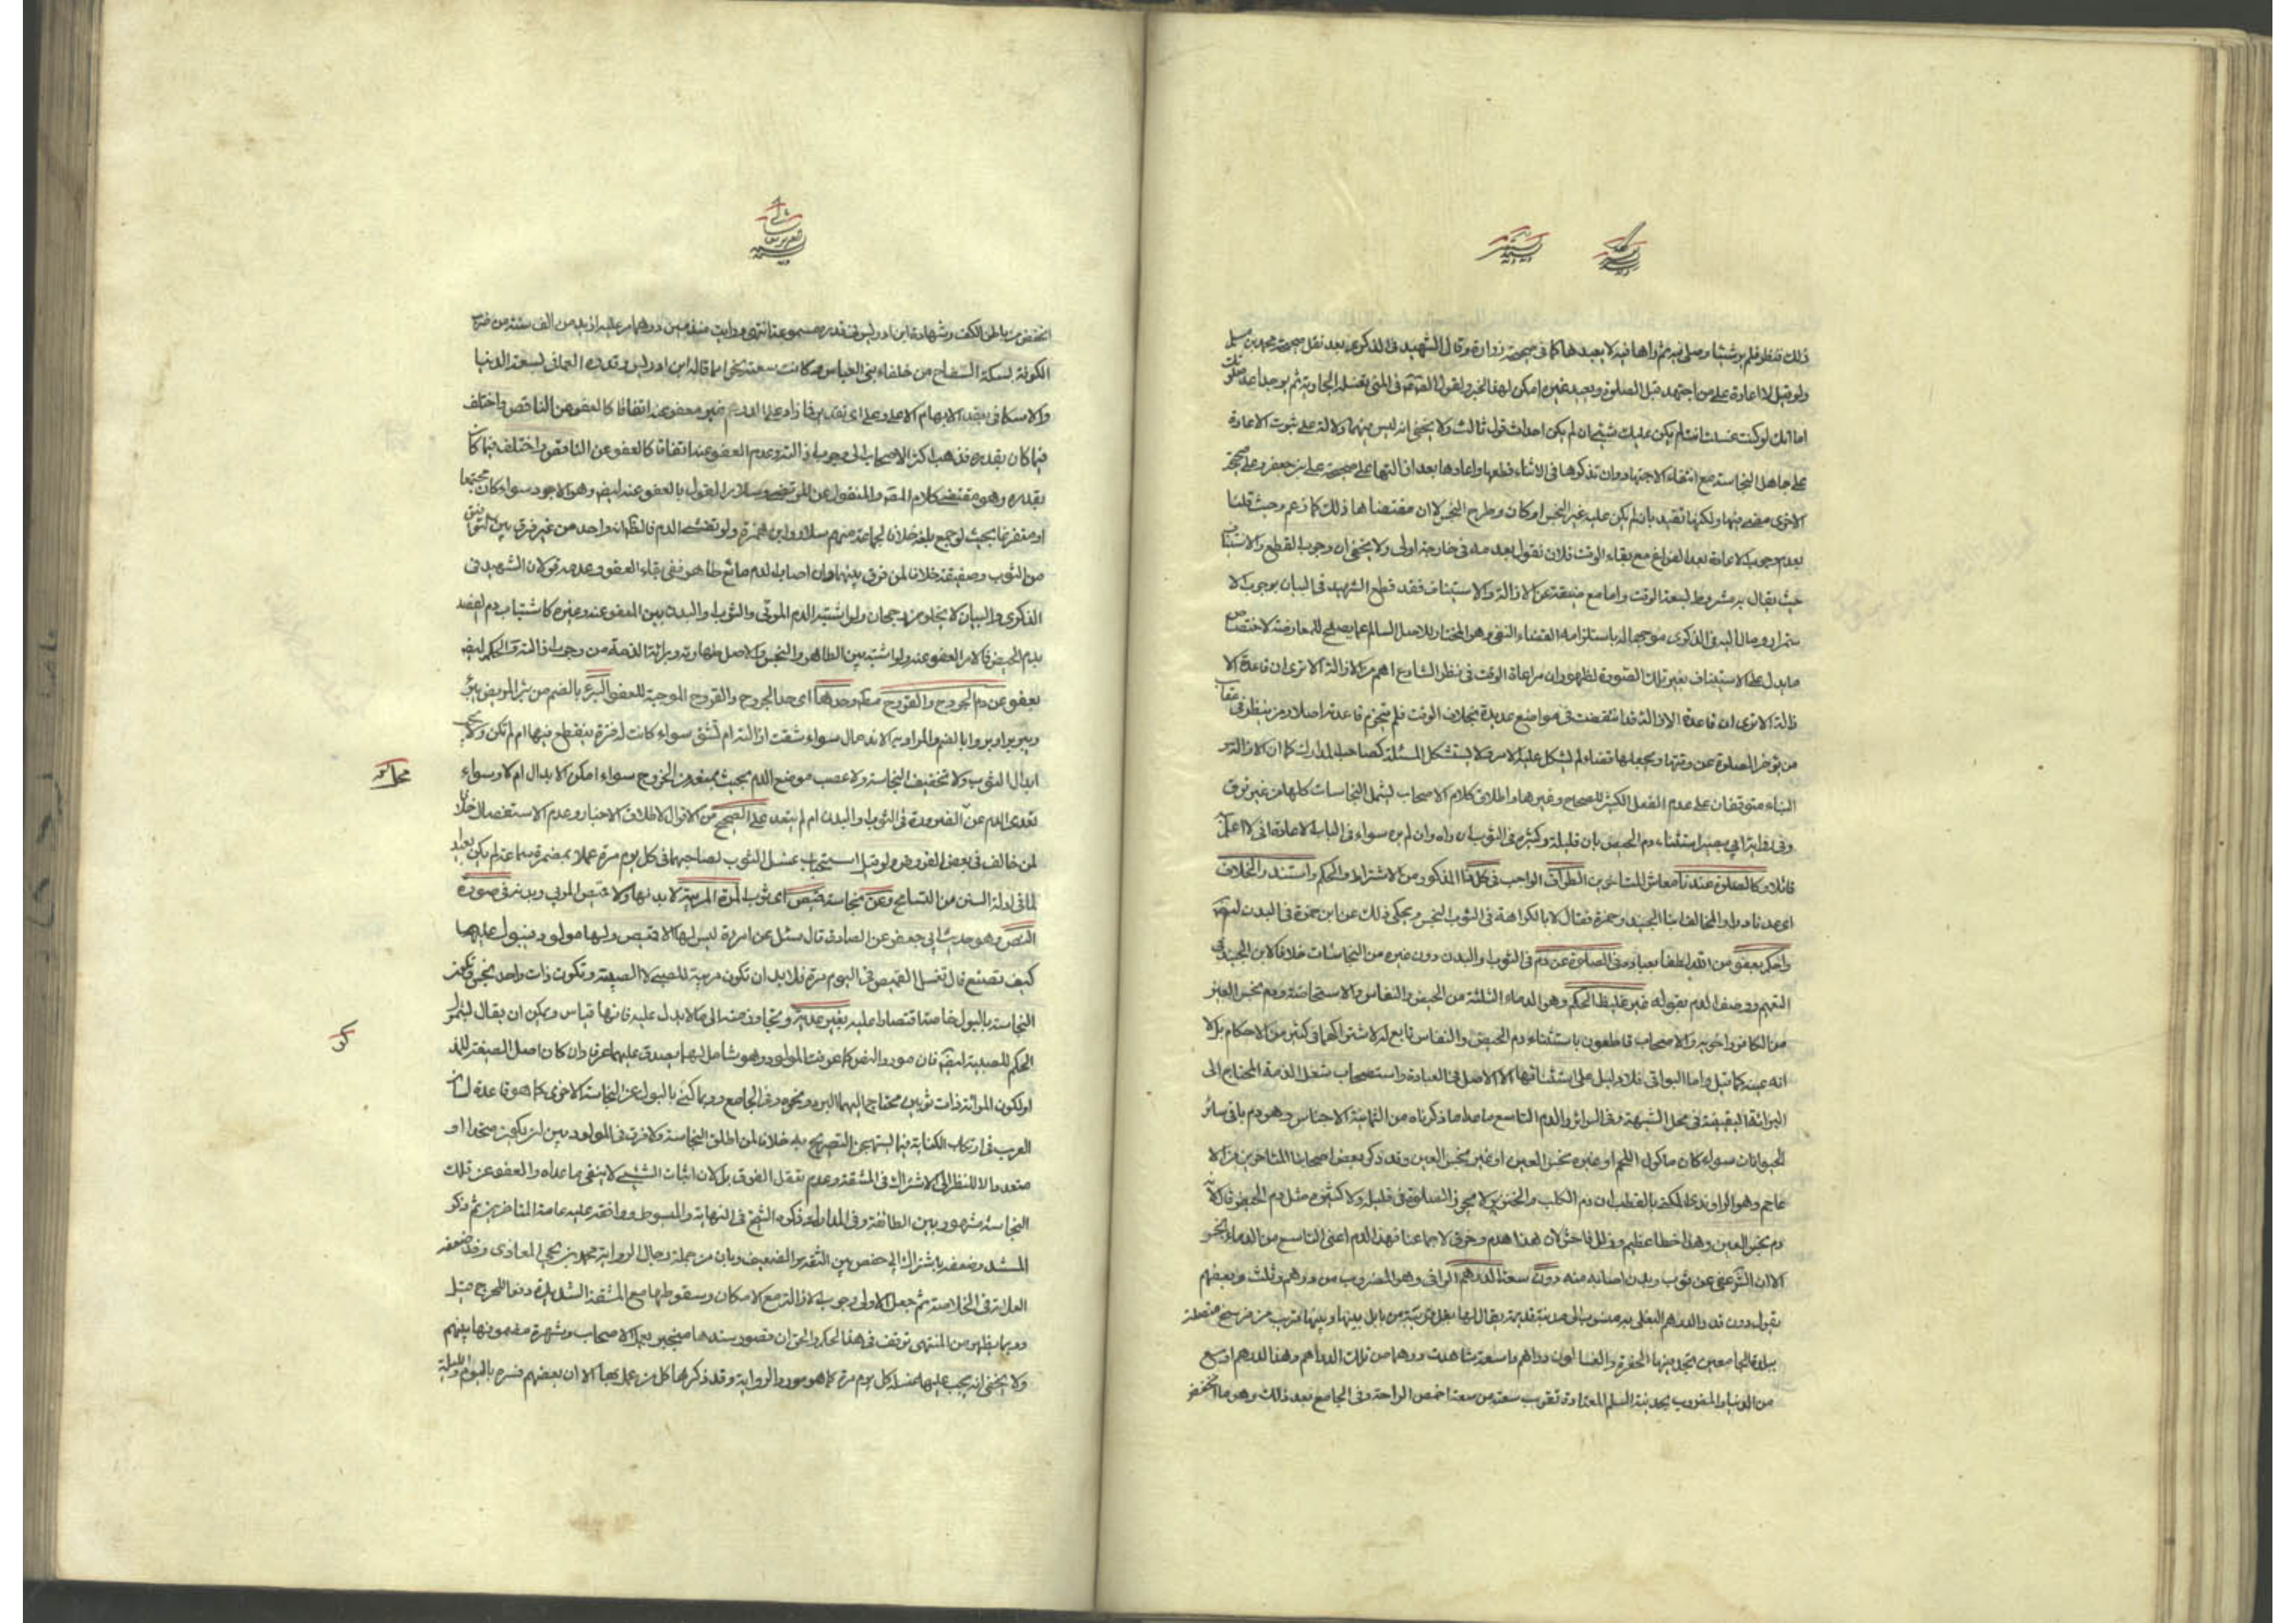 ذلك فنظر فلم ير شيئا وصلى فيه ثم راها فيه لا يعيدها كما في صحيحة زرارة وقال الشهيد في الذكرى بعد نقل صحيحة محمد بن مسلم
ولو قيل لا اعادة على من اجتهد قبل الصلوة ويعيد غيره امكن لهذا الخبر ولقول الصادق في المني تغسله الجارية ثم يوجد اعد صلوتك
اما انك لو كنت غسلت انت لم يكن عليك شيء ان لم يكن احداث قول ثالث ولا يخفى انه ليس فيهما دلالة على ثبوت الاعادة
على جاهل النجاسة مع انتفاء الاجتهاد وان تذكرها في الاثناء قطعها واعادها بعد ازالتها على صحيحة علي بن جعفر وعلى صحيحة
الاخرى مضى فيها ولكنها تقيد بان لم يكن عليه غير النجس او كان وطرح النجس لا ان مقتضاها ذلك كما زعم وحيث قلنا
بعدم وجوب الاعادة بعد الفراغ مع بقاء الوقت فلان نقول بعدمه في خارجه اولى ولا يخفى ان وجوب القطع والاستيناف
حيث يقال به مشروط لسعة الوقت واما مع ضيقه عن الازالة والاستيناف فقد قطع الشهيد في البيان بوجوب الا
ستمرار ومال اليه في الذكرى موجها له باستلزامه القضاء المنفي وهو المختار للاصل السالم عما يصلح للمعارضة لاختصاص
ما يدل على الاستيناف بغير تلك الصورة لظهور ان مراعاة الوقت في نظر الشارع اهم من الازالة الا ترى ان قاعدة الا
زالة الا ترى ان قاعدة الازالة قد انتقضت في مواضع عديدة بخلاف الوقت فلم تنخرم قاعدته اصلا ومن ينظر في عقاب
من يؤخر الصلوة عن وقتها ويجعلها قضاء لم يشكل عليه الامر ولا يستشكل المسئلة كصاحب المدارك كما ان الازالة و
البناء متوقفان على عدم الفعل الكثير للصحاح وغيرها واطلاق كلام الاصحاب يشمل النجاسات كلها من غير فرق
وفي رواية ابي بصير استثناء دم الحيض بان قليله وكثيره في الثوب ان راه وان لم يره سواء في الباب لا عادة اني لا اعلم
قائلا وكالصلوة عندنا معاشر المتاخرين الطواف الواجب في كل هذا المذكور من الاشتراط والحكم واستند والخلاف
اي عدنا دواو المخالف ابنا الجنيد وحمزة فقال لا بالكراهة في الثوب النجس ويحكى ذلك عن ابن حمزة في البدن ايضا
واحكم بعفو من الله لطفا بعباده في الصلوة عن دم في الثوب والبدن دون غيره من النجاسات خلافا لابن الجنيد في
التهم ووصف الدم بقوله غير غليظ الحكم وهو الدماء الثلثة من الحيض والنفاس والاستحاضة ودم نجس العين
من الكافر واخويه والاصحاب قاطعون باستثناء دم الحيض والنفاس تابع له لاشتراكهما في كثير من الاحكام بل لا
انه عينه كما قيل واما البواقي فلا دليل على استثنائها الا الاصل في العبادة واستصحاب شغل الذمة المحتاج الى
البرائة اليقينية في محل الشبهة وفي السرائر والدم التاسع ماعدا ما ذكرناه من الثمانية الاجناس وهو دم باقي سائر
الحيوانات سواء كان ماكول اللحم او غيره نجس العين او غير نجس العين وقد ذكر بعض اصحابنا المتاخرين من الا
عاجم وهو الراوندي المكنى بالقطب ان دم الكلب والخنزير لا يجوز الصلوة في قليله ولا كثيره مثل دم الحيض قال لانه
دم نجس العين وهذا خطا عظيم وزلل فاحش لان هذا هدم وخرق لاجماعنا فهذا الدم اعني التاسع من الدماء نجس
الا ان الشرع عفى عن ثوب وبدن اصابه منه دون سعة الدرهم الوافي وهو المضروب من درهم وثلث وبعضهم
يقول دون قدر الدرهم البغلي به منسوب الى مدينة قديمة يقال لها بغل قريبة من بابل بينها وبينها قريب من فرسخ متصلة
ببلدة الجامعين تجد فيها الحفرة والغسالون دراهم واسعة شاهدت درهما من تلك الدراهم وهذا الدرهم اوسع
من الدينار المضروب بمدينة السلم المعتادة تقرب سعته من سعة اخمص الراحة وفي الجامع بعد ذلك وهو ما انخفض
انخفض من باطن الكف وشهادة ابن ادريس في قدره مسموعة انتهى ورايت منذ سنين درهما مر عليه ازيد من الف سنة من ضرب
الكوفة بسكة السفاح من خلفاء بني العباس وكانت سعته نحوا مما قاله ابن ادريس وقدره العماني بسعة الدنيا
والاسكافي بعقد الابهام الاعلى وعلى اي تقدير فما زاد على الدرهم غير معفو عنه اتفاقا كالعفو عن الناقص واختلف
فيما كان بقدره فذهب اكثر الاصحاب الى وجوب ازالته وعدم العفو عنه اتفاقا كالعفو عن الناقص واختلف فيما كان
بقدره وهو مقتضى كلام المص والمنقول عن المرتضى وسلار القول بالعفو عنه ايض وهو الاجود سواء كان مجتمعا
او متفرقا بحيث لو جمع بلغه خلافا لجماعة منهم سلار وابن حمزة ولو تفشى الدم فالظاهر انه واحد من غير فرق بين رقيق
من الثوب وصفيقه خلافا لمن فرق بينهما وان اصاب الدم مائع طاهر ففي بقاء العفو وعدمه قولان الشهيد في
الذكرى والبيان لا يخلو من رجحان ولو اشتبه الدم المرئي والثوب والبدن بين المعفو عنه وغيره كاشتباه دم الفصد
بدم الحيض فالامر العفو عنه ولو اشتبه بين الطاهر والنجس فالاصل طهارته وبرائة الذمة من وجوب ازالته والحكم ايض
بعفو عن دم الجروح والقروح معا وحدهما اي حد الجروح والقروح الموجبة للعفو البرء بالضم من برئ المريض يبرؤ
ويبرء برء وبروءا بالضم والمراد به الاندمال سواء شقت ازالته ام لم تشق سواء كانت له فترة ينقطع فيها ام لم تكن ولا يجب
ابدال الثوب ولا تخفيف النجاسة ولا عصب موضع الدم بحيث يمنعه من الخروج سواء امكن الابدال ام لا وسواء
تعدى الدم عن الضرورة في الثوب والبدن ام لم يتعد على الصحيح من الاقوال لاطلاق الاخبار وعدم الاستفصال خلافا
لمن خالف في بعض الفروض ولو قيل استحباب غسل الثوب لصاحبهما في كل يوم مرة عملا بمضمرة سماعة لم يكن بعيدا
لما في ادلة السنن من التسامح وعن نجاسة قميص اي ثوب المرأة المربية لا بدنها ولا قميص المربي وبدنه في صورة
النص وهو حديث ابي جعفر عن الصادق قال سئل عن امرءة ليس لها الا قميص ولها مولود فيبول عليها
كيف تصنع قال تغسل القميص في اليوم مرة فلا بد ان تكون مربية للصبي لا الصبية وتكون ذات واحد نجس وتكون
النجاسة بالبول خاصة اقتصارا عليه بغير عدية وتجاوز عنه الى ما لا يدل عليه فانها قياس ويمكن ان يقال ليشمل
الحكم للصبية ايضا فان مورد النص كما عرفت المولود وهو شامل لهما يصدق عليهما عرفا وان كان اصل الصيغة للمذ
او لكون المرائة ذات ثوبين محتاج اليهما البرد ونحوه وفي الجامع وربما كني بالبول عن النجاسة الاخرى كما هو قاعدة لسان
العرب في ارتكاب الكناية فيما يستهجن التصريح به خلافا لمن اطلق النجاسة ولا فرق في المولود بين ان يكون متحدا او
متعددا لا للنظر الى الاشتراك في المشقة وعدم تعقل الفرق بل لان اثبات الشيء لا ينفي ما عداه والعفو عن تلك
النجاسة مشهور بين الطائفة وفي المدارك وذكره الشيخ في النهاية والمبسوط ووافقه عليه عامة المتاخرين ثم ذكر
المستند وضعفه باشتراك ابي حفص بين الثقة والضعيف وبان من جملة رجال الرواية محمد بن يحيى المعاذي وقد ضعفه
العلامة في الخلاصة ثم جعل الاولى وجوب الازالة مع الامكان وسقوطها مع المشقة الشديدة دفعا للحرج قيل
وربما يظهر من المنتهى توقف في هذا الحكم والحق ان قصور سندها منجبر بعمل الاصحاب وشهرة مضمونها بينهم
ولا يخفى انه يجب عليها غسله كل يوم مرة كما هو مورد الرواية وقد ذكرها كل من عمل بها الا ان بعضهم فسره باليوم والليلة